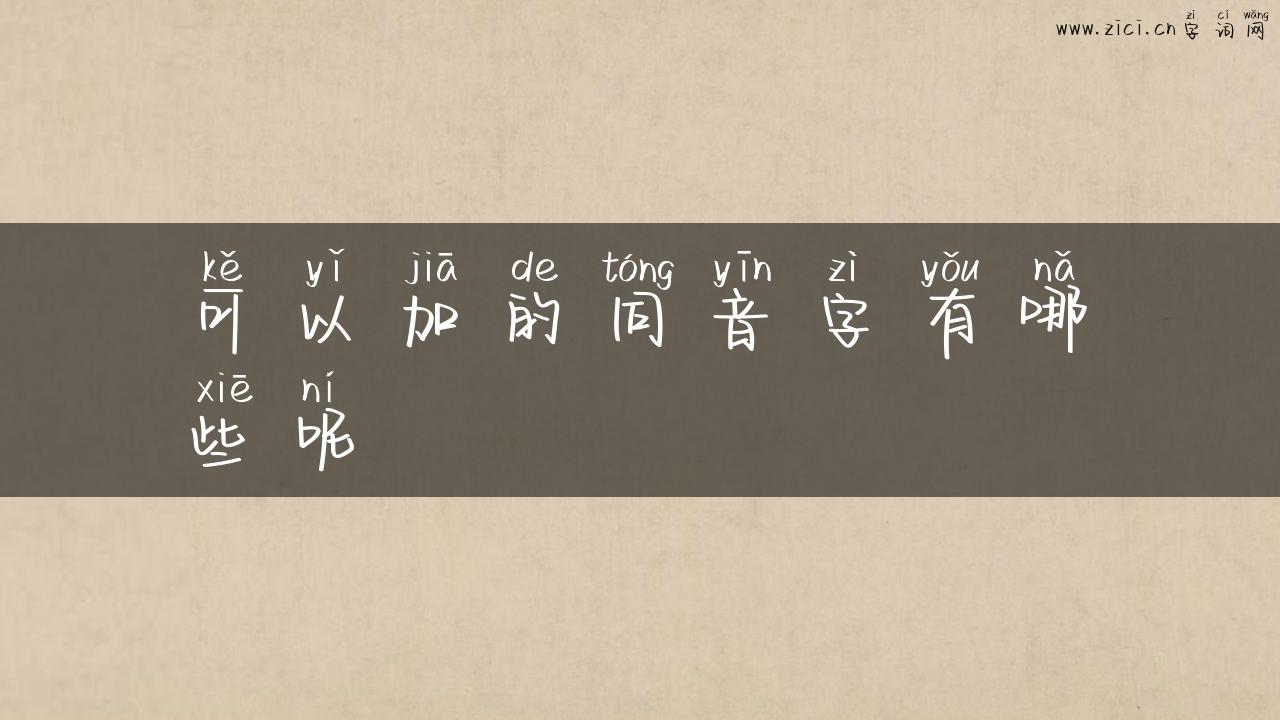 zì cí wǎng
www.zici.cn 字词网
kě yǐ jiā de tóng yīn zì yǒu nǎ
可以加的同音字有哪
xiē ní
些呢